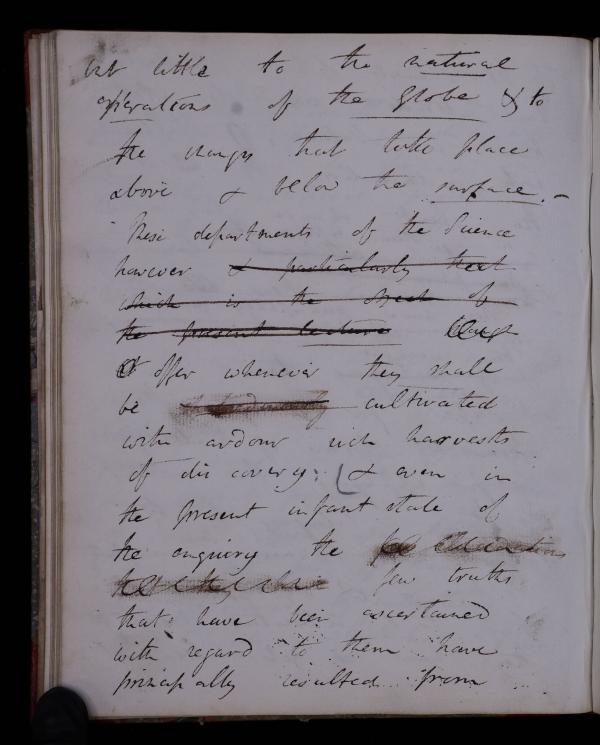 but little to the natural
operations of the Globe & to
the changes that take place
above & below the surface. -
These departments of the Science
however & particularly that
which is the object of
the present lecture
offer whenever they shall
be cultivated
with ardour rich harvests
of discovery: & even in
the present infant state of
the enquiry the
few truths
that have been ascertained
with regard to them have
principally resulted from